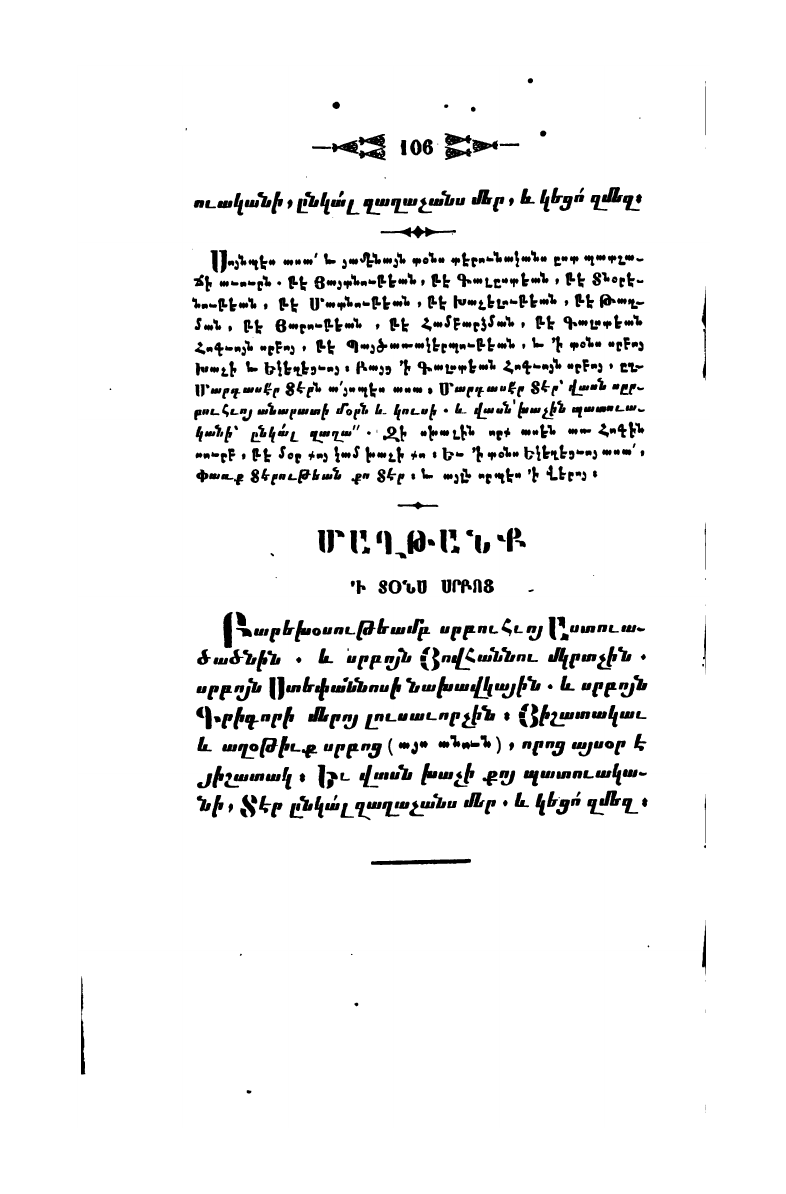 106
ուականի, ընկա՛լ զաղաչանս մեր, և կեցո՛ զմեզ։
Սոյնպէս ասա՛ և յամենայն տօնս տէրունականս ըստ պատշա-
ճի աւուրն. թէ Յայտնութեան, թէ Գալըստեան, թէ Տնօրէ-
նութեան, թէ Մատնութեան, թէ Խաչելութեան, թէ Թաղ-
ման, թէ Յարութեան, թէ Համբարձման, թէ Գալստեան
Հոգւոյն սրբոյ, թէ Պայծառակերպութեան, և ՚ի տօնս սրբոյ
Խաչի և Եկեղեցւոյ։ Բայց ՚ի Գալստեան Հոգւոյն սրբոյ, ըզ-
Մարդասէր Տէրն ա՛յսպէս ասա, Մարդասէր Տէր՝ վասն սըր-
բուհւոյ անարատի մօրն և կուսի. և վասն՝ խաչին պատուա-
կանի՝ ընկալ զաղա՛՛. Զի սխալին որք ասեն առ Հոգին
սուրբ, թէ մօր քոյ կամ խաչի քո։ Եւ ՚ի տօնս Եկեղեցւոյ ասա՛,
Փառք Տէրութեան քո Տէր, և այլն որպէս ՚ի վերոյ։
ՄԱՂԹԱՆՔ
՚Ի ՏՕՆՍ ՍՐԲՈՑ
Բարեխօսութեամբ սրբուհւոյ Աստուա-
ծածնին. և սրբոյն Յովհաննու մկրտչին.
սրբոյն Ստեփաննոսի նախավկային. և սրբոյն
Գրիգորի մերոյ լուսաւորչին։ Յիշատակաւ
և աղօթիւք սրբոց (այս անուն), որոց այսօր է
յիշատակ։ Եւ վասն խաչի քոյ պատուակա-
նի, Տէր ընկա՛լ զաղաչանս մեր. և կեցո՛ զմեզ։